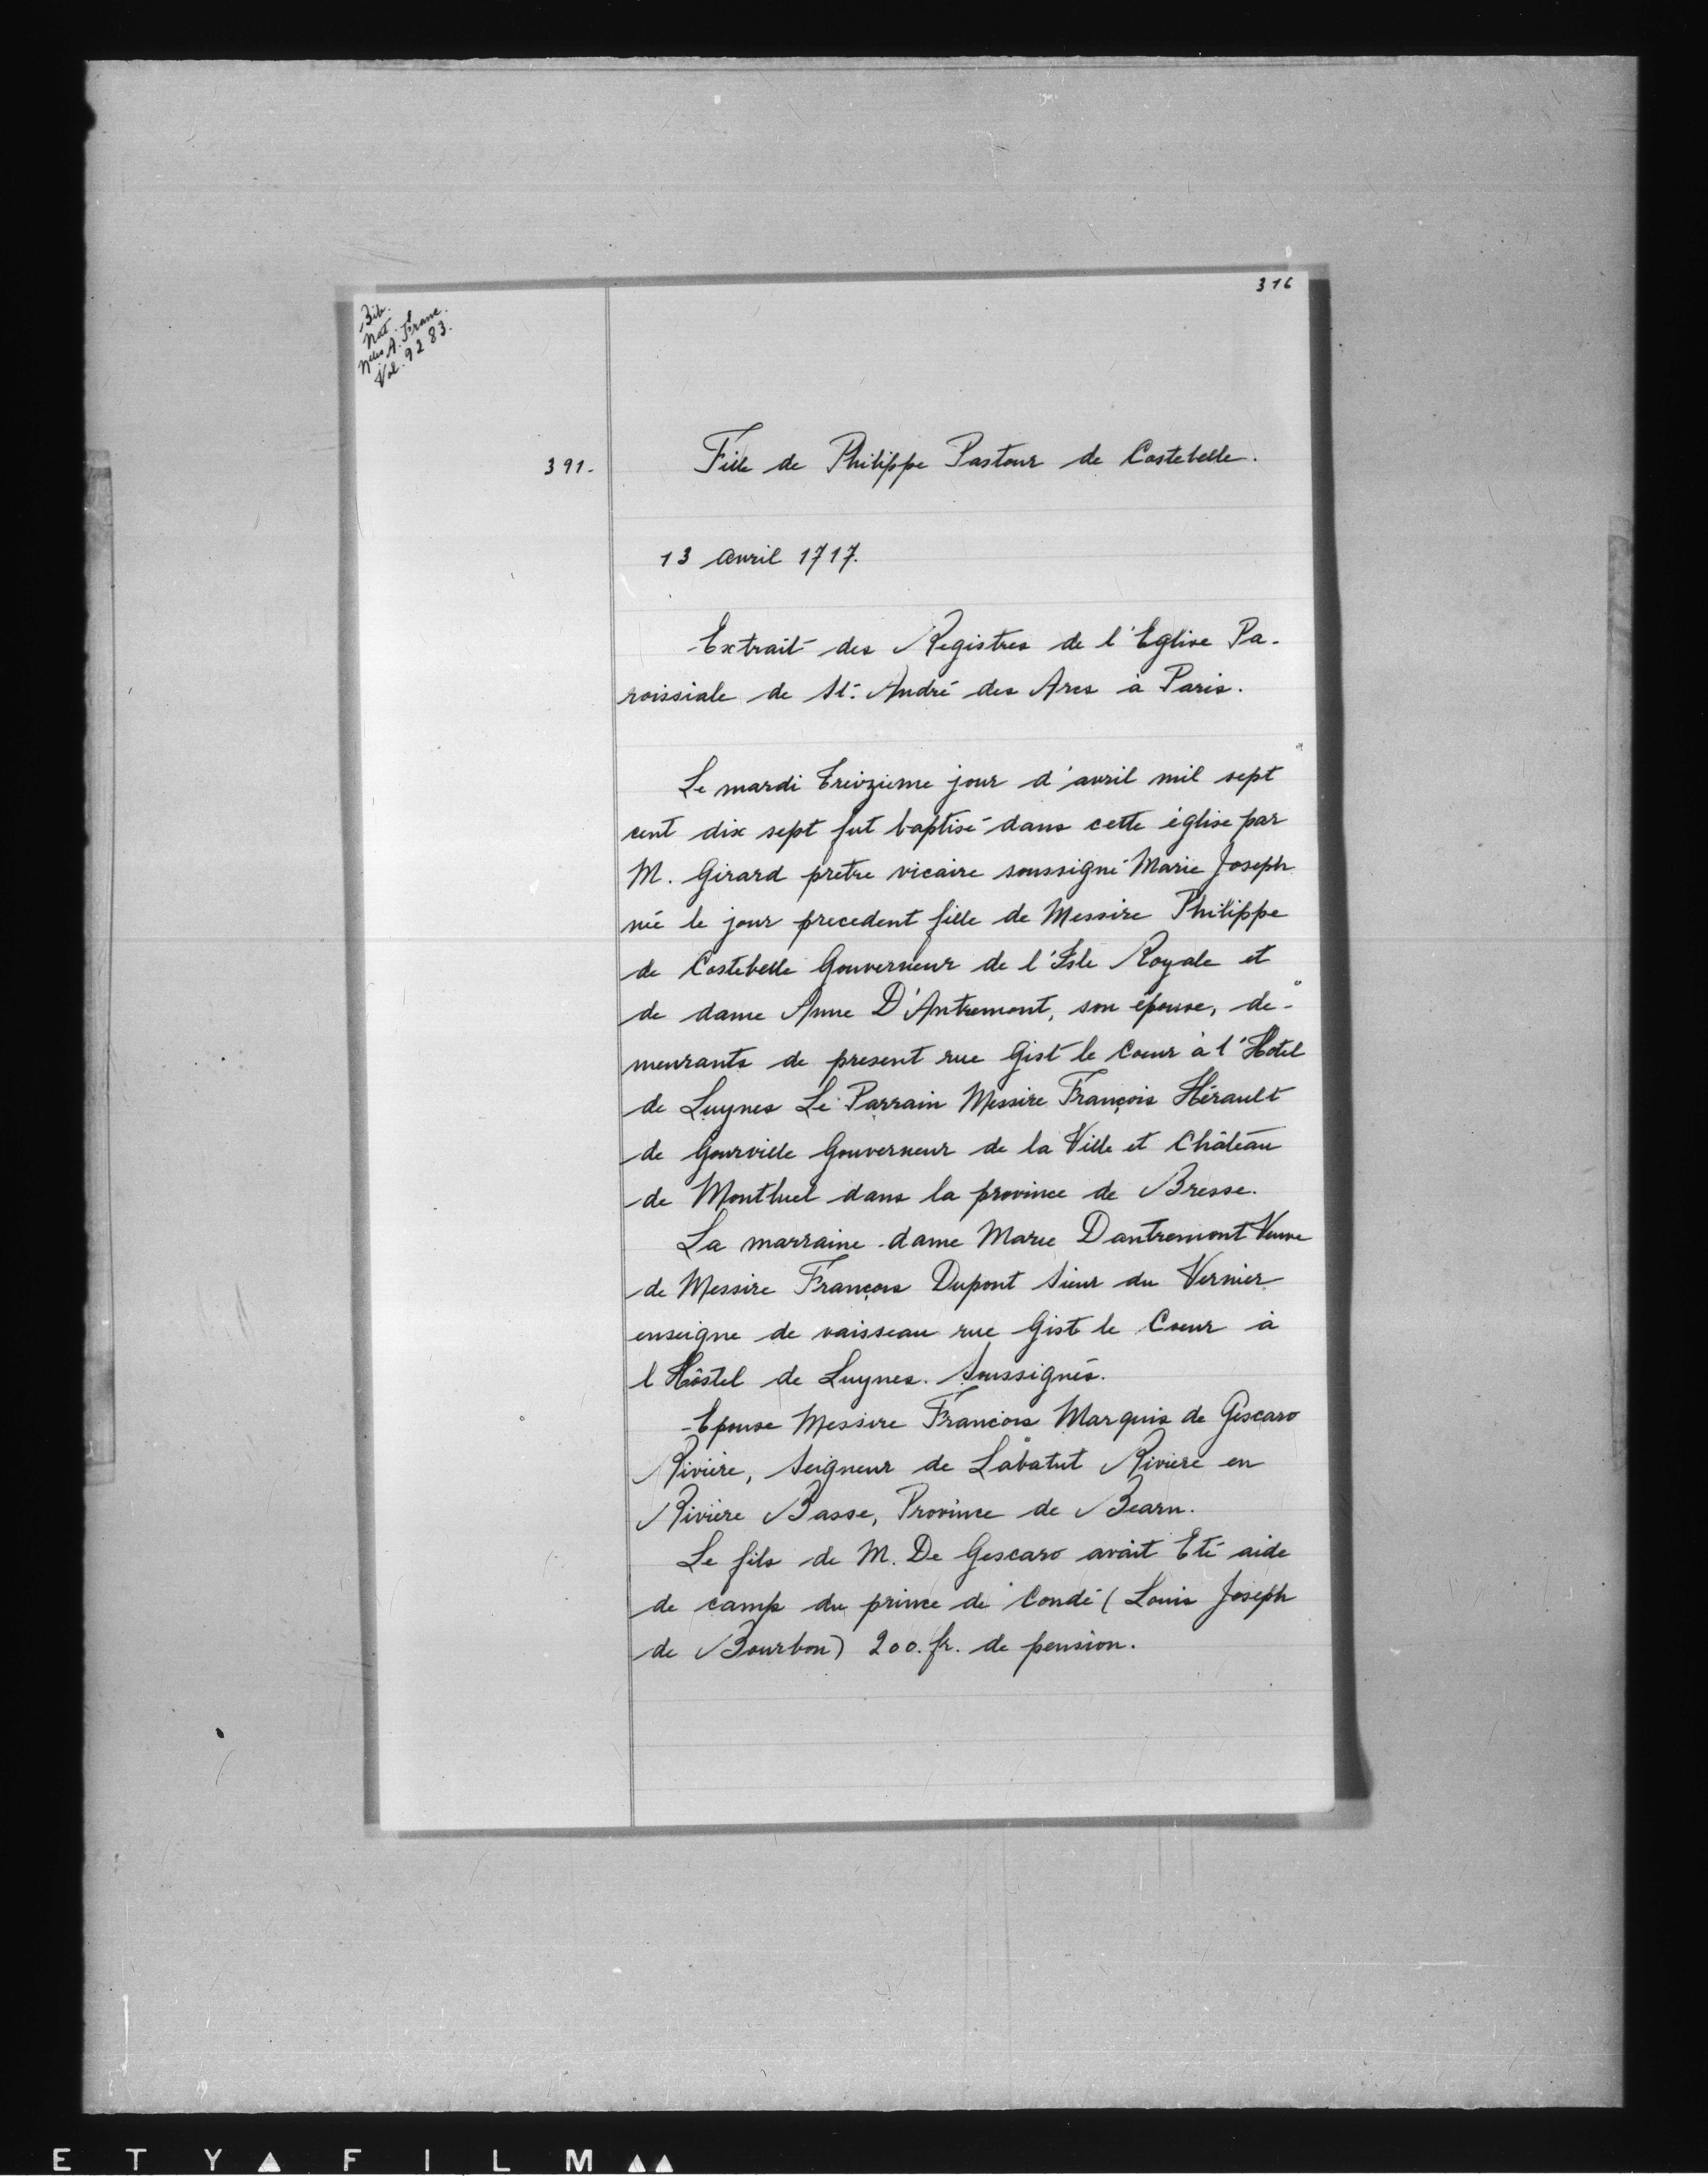 316
Bib.
Nat.
Nlles A. Franc.
Vol. 9283.
391.
Fille de Philippe Pastour de Costebelle.
13 avril 1717.
Extrait des Registres de l'Eglise Pa-
roissiale de St. André des Arcs à Paris.
Le mardi treizieme jour d'avril mil sept
cent dix sept fut baptisé dans cette église par
M. Girard pretre vicaire soussigné Marie Joseph
née le jour precedent fille de Messire Philippe
de Costebelle Gouverneur de l'Isle Royale et
de dame Anne D'Antremont, son épouse, de-
meurants de present rue Gist le Coeur à l'Hotel
de Luynes Le Parrain Messire François Hérault
de Gourville Gouverneur de la Ville et Château
de Montluel dans la province de Bresse.
La marraine dame Marie Dantremont Veuve
de Messire François Dupont Sieur du Vernier
enseigne de vaisseau rue Gist le Coeur à
l Hôstel de Luynes. Soussignés.
Epouse Messire François Marquis de Gescaro
Rivière, Seigneur de Labatut Riviere en
Rivière Basse, Province de Bearn.
Le fils de M. De Gescaro avait Eté aide
de camp du prince de Condé (Louis Joseph
de Bourbon) 200. fr. de pension.
E T Y ▲ F I L M ▲▲